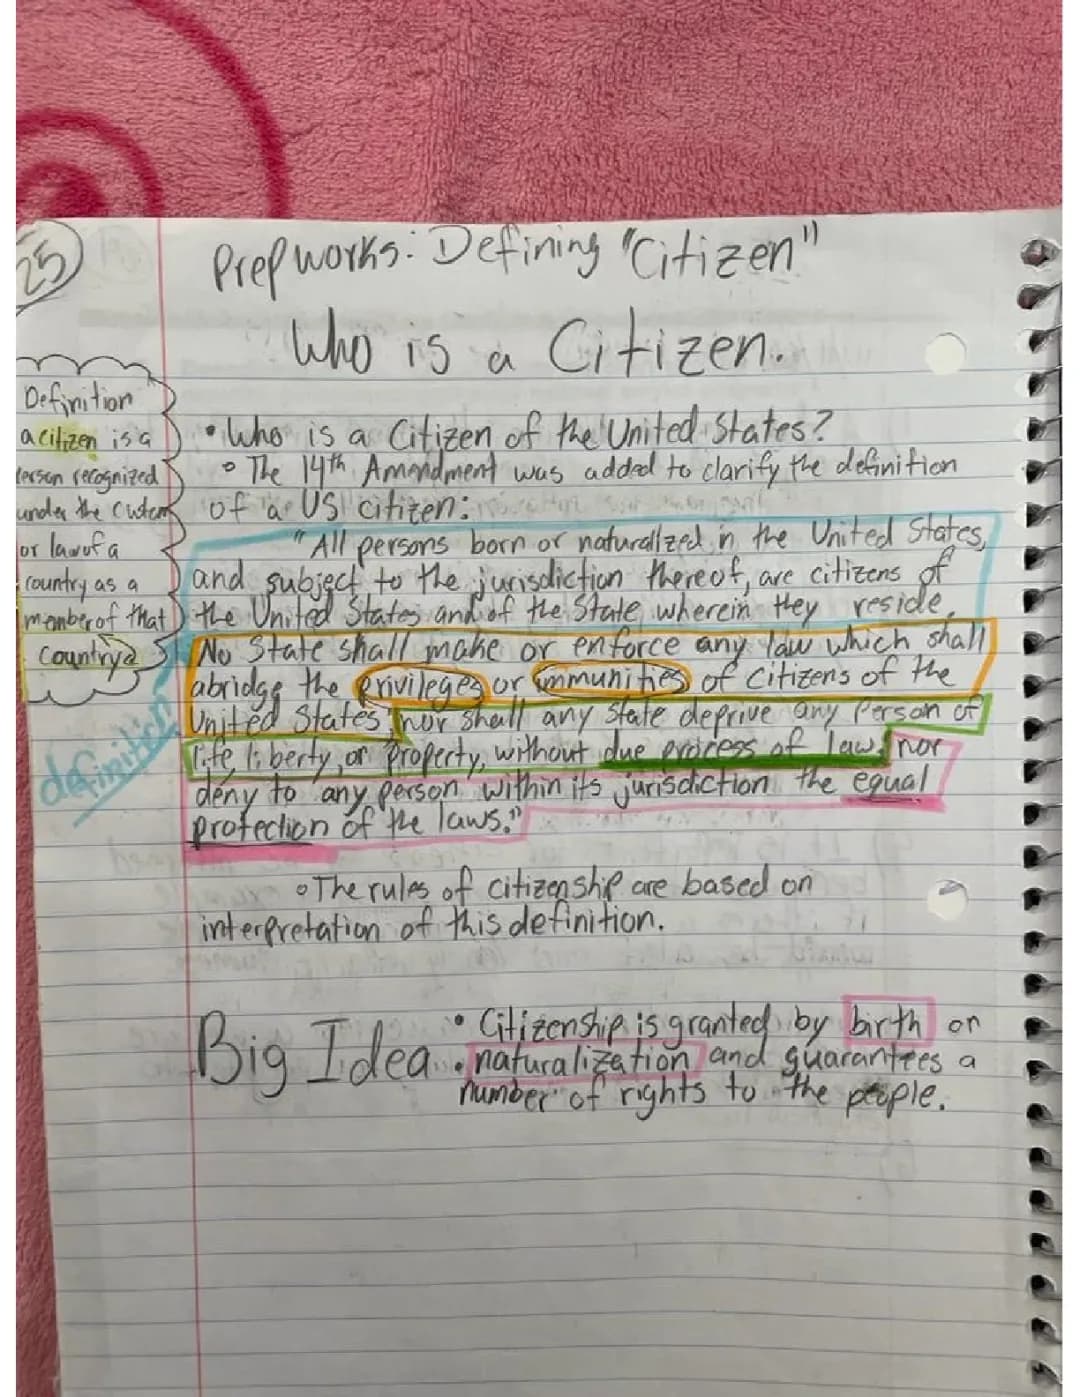 25
Prepworks: Defining "Citizen"
Who is a Citizen.
Definition
a citizen is a
Person recognized
under the custom
or law of a
country as a
member of that
Country
definition
• Who is a Citizen of the United States?
◦ The 14th Amendment was added to clarify the definition
of a US citizen:
"All persons born or naturalized in the United States,
and subject to the jurisdiction thereof, are citizens of
the United States and of the State wherein they reside.
No State shall make or enforce any law which shall
abridge the privileges or immunities of Citizens of the
United States; nor shall any State deprive any Person of
life, liberty, or Property, without due process of law; nor
deny to any person within its jurisdiction the equal
protection of the laws."
◦ The rules of citizenship are based on
interpretation of this definition.
Big Idea
• Citizenship is granted by birth or
• naturalization and guarantees a
number of rights to the people.